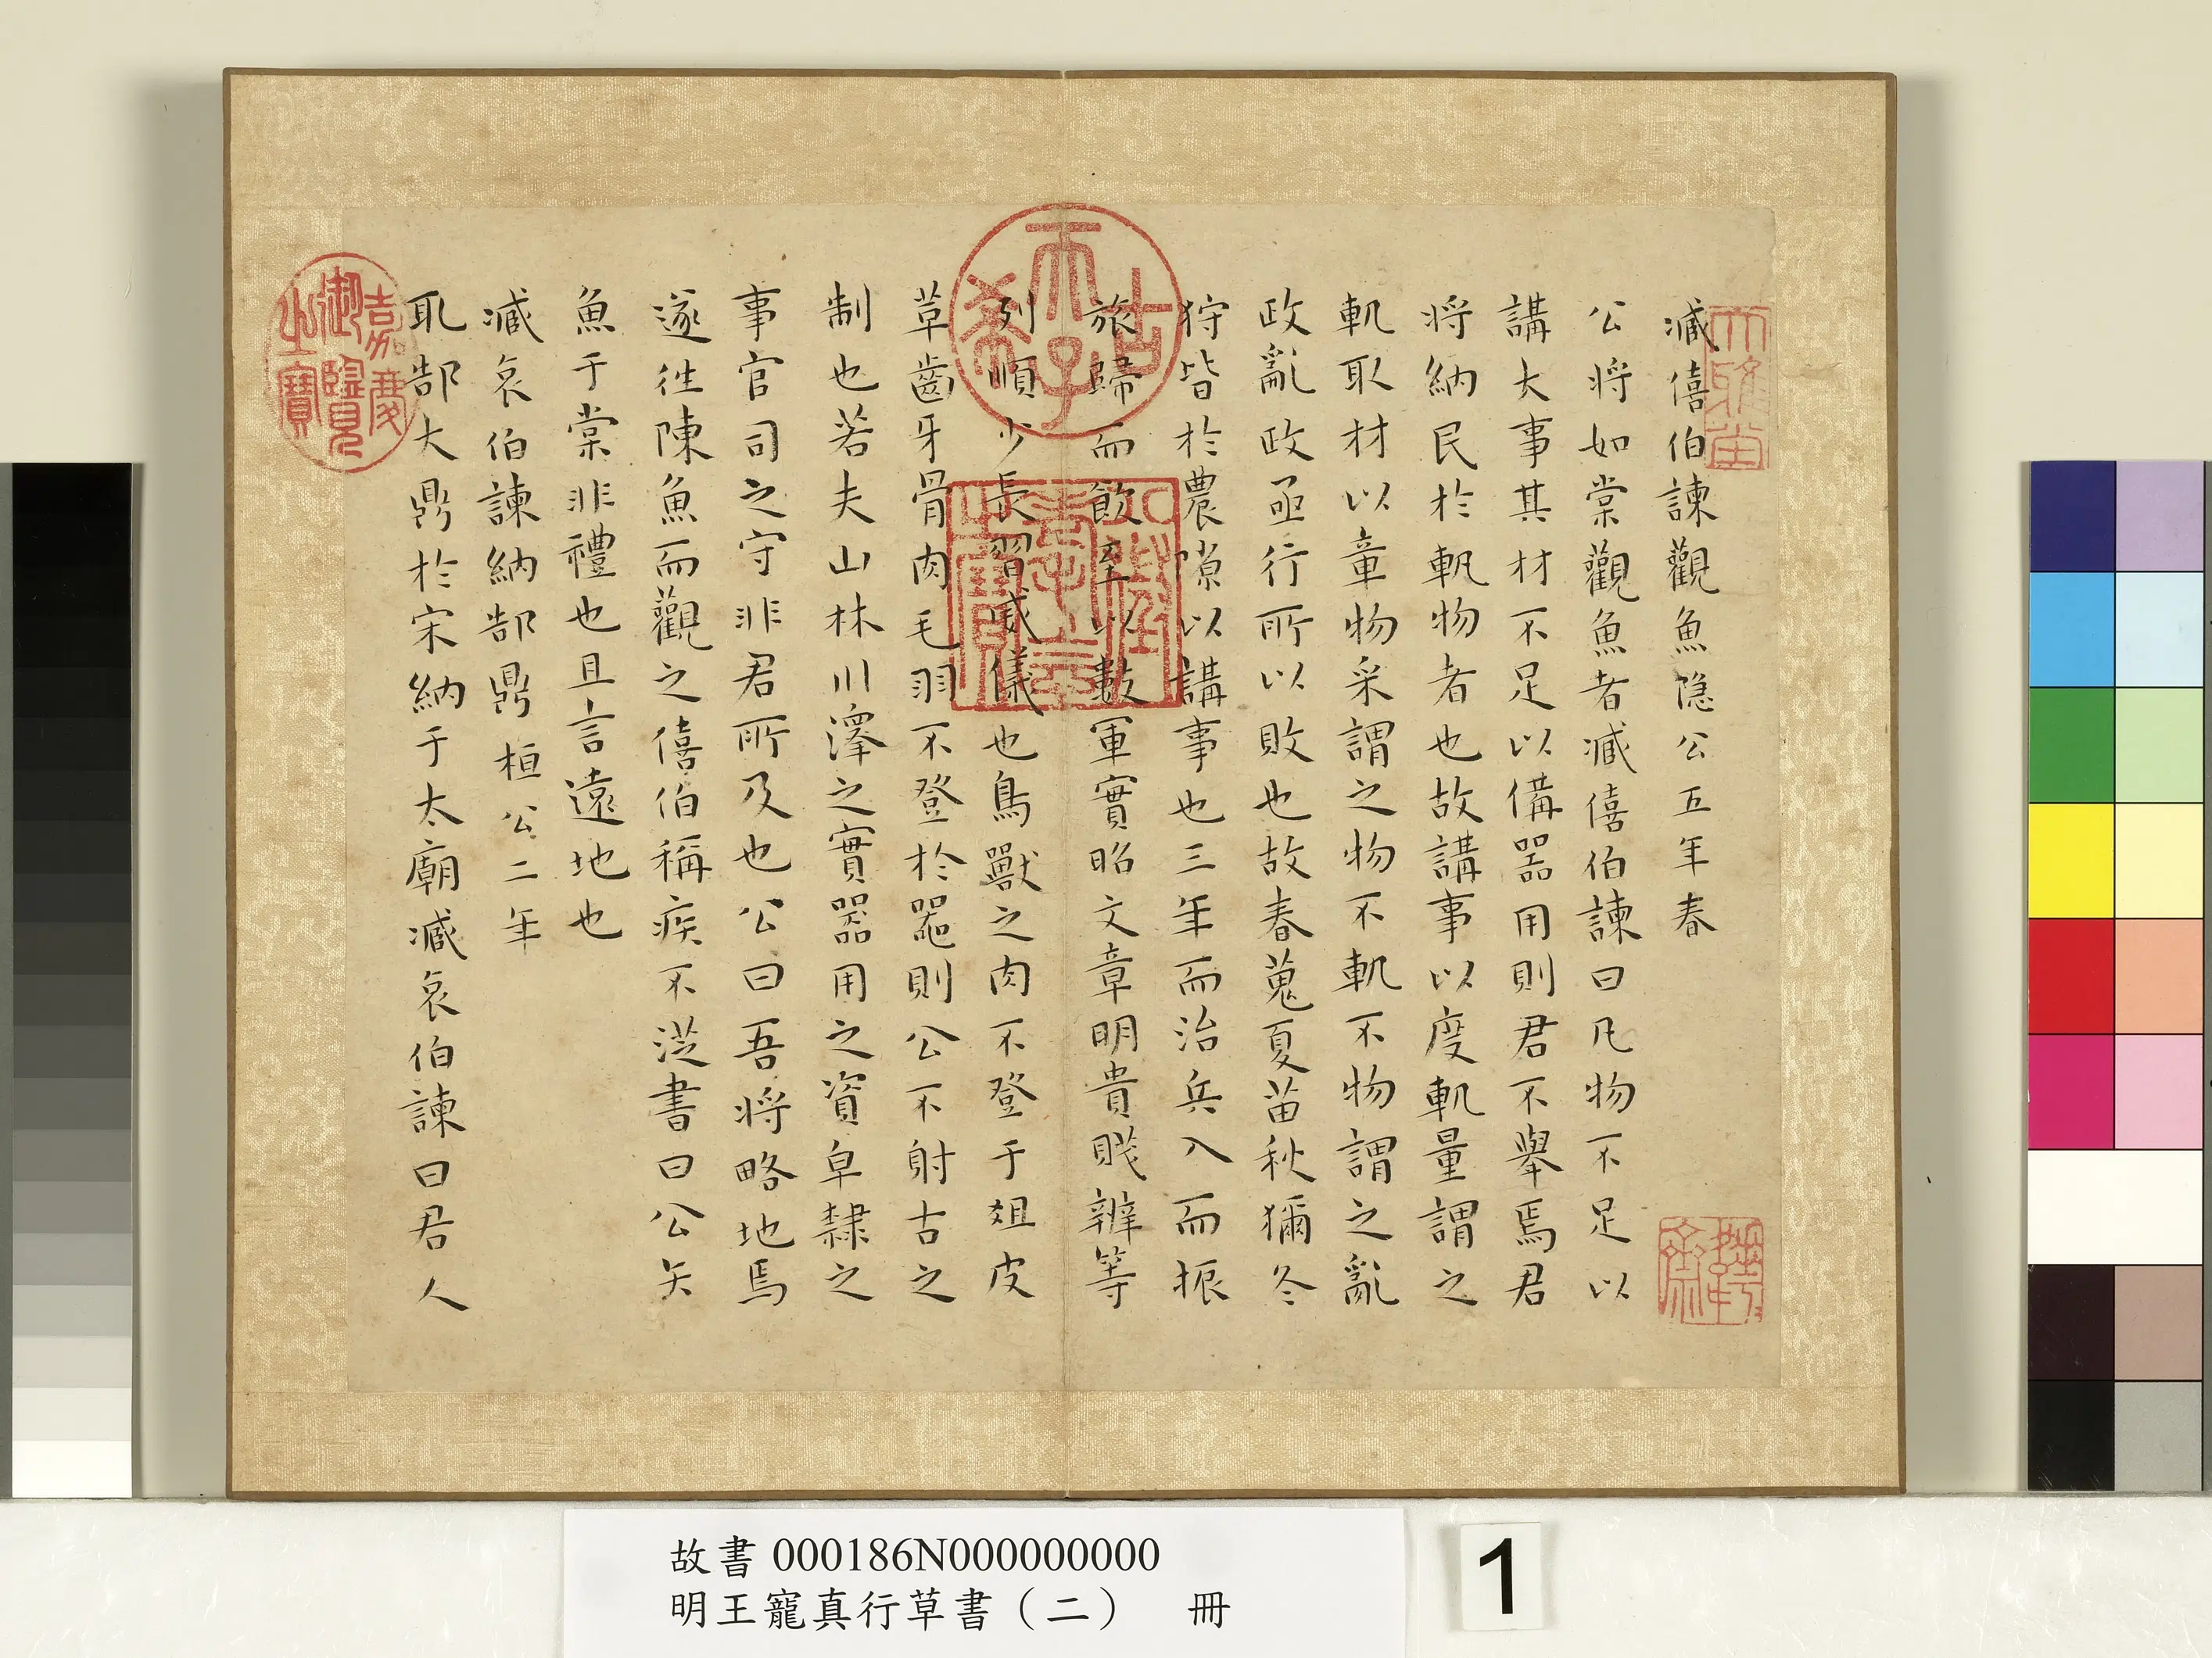 臧僖伯諫觀魚隱公五年春
公將如棠觀魚者臧僖伯諫曰凡物不足以
講大事其材不足以備器用則君不舉焉君
將納民於軌物者也故講事以度軌量謂之
軌取材以章物采謂之物不軌不物謂之亂
政亂政亟行所以敗也故春蒐夏苗秋獮冬
狩皆於農隙以講事也三年而治兵入而振
旅歸而飲至以數軍實昭文章明貴賤辨等
列順少長習威儀也鳥獸之肉不登于俎皮
革齒牙骨肉毛羽不登於器則公不射古之
制也若夫山林川澤之實器用之資皁隸之
事官司之守非君所及也公曰吾將略地焉
遂往陳魚而觀之僖伯稱疾不從書曰公矢
魚于棠非禮也且言遠地也
臧哀伯諫納郜鼎 桓公二年
取郜大鼎於宋納于太廟臧哀伯諫曰君人
大雅堂
古希天子
八徵耄念之寶
嘉慶御覽之寶
故書000186N000000000
明王寵真行草書（二） 冊
1